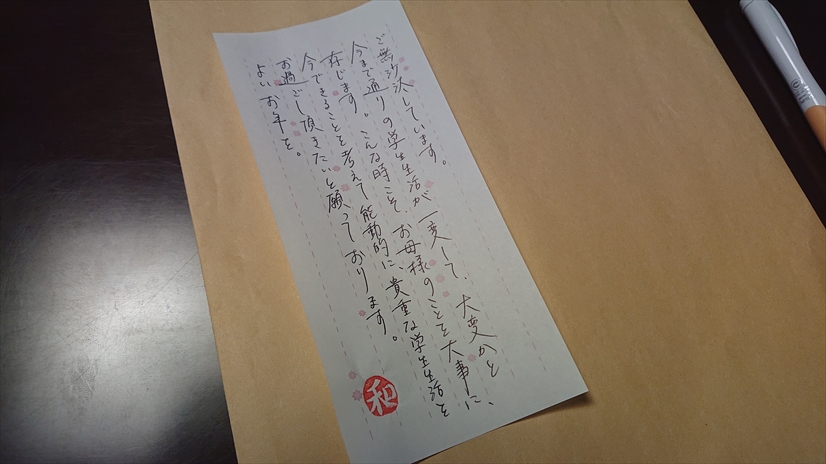 ご無沙汰しています。
今まで通りの学生生活が一変して、大変かと
存じます。こんな時こそお母様のことを大事に、
今できることを考えて能動的に、貴重な学生生活を
お過ごし頂きたいと願っております。
よいお年を。
和